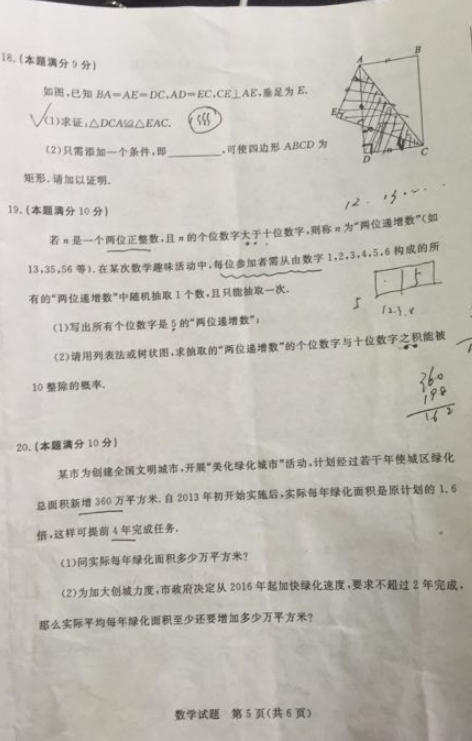 18.(本题满分 9 分)
如图,已知 BA=AE=DC,AD=EC,CE⊥AE,垂足为 E.
(1)求证:△DCA≌△EAC.
(2)只需添加一个条件,即________,可使四边形 ABCD 为
矩形.请加以证明.
A
B
E
D
C
19.(本题满分 10 分)
12. 13. ……
若 n 是一个两位正整数,且 n 的个位数字大于十位数字,则称 n 为“两位递增数”(如
13,35,56 等).在某次数学趣味活动中,每位参加者需从由数字 1,2,3,4,5,6 构成的所
有的“两位递增数”中随机抽取 1 个数,且只能抽取一次.
(1)写出所有个位数字是 5 的“两位递增数”;
5
(2)请用列表法或树状图,求抽取的“两位递增数”的个位数字与十位数字之积能被
10 整除的概率.
360
198
162
20.(本题满分 10 分)
某市为创建全国文明城市,开展“美化绿化城市”活动,计划经过若干年使城区绿化
总面积新增 360 万平方米.自 2013 年初开始实施后,实际每年绿化面积是原计划的 1.6
倍,这样可提前 4 年完成任务.
(1)问实际每年绿化面积多少万平方米?
(2)为加大创城力度,市政府决定从 2016 年起加快绿化速度,要求不超过 2 年完成,
那么实际平均每年绿化面积至少还要增加多少万平方米?
数学试题 第 5 页(共 6 页)